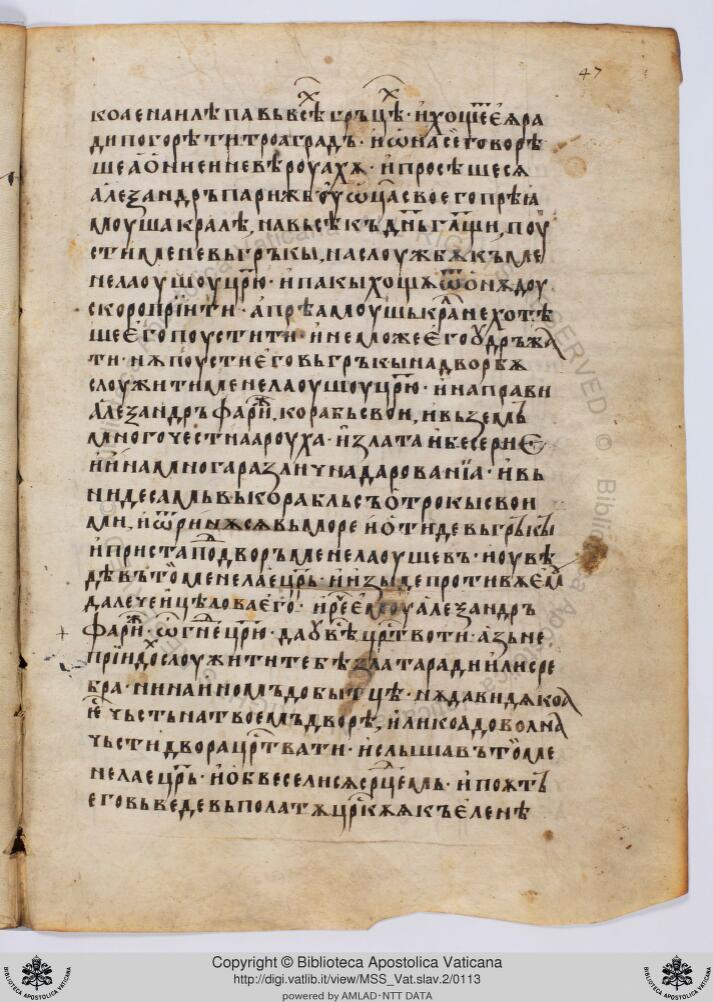 47
коа е наилѣпа вь всѣⷯ гръцѣⷯ · и хощеⷮ еѧ ра
ди погорѣти троа градъ · и ѡ насе говорѣ
ше а ѡни еи не вѣроуахѫ · и просѣше сѧ
алеѯандръ парижь оу ѡц҃а своего прѣіа
моуша кралѣ, на вьсѣкъ дн҃ь гл҃щи, поу
сти мене вь гръкы, на слоужбѫ къ ме
нелаоушоу цр҃ю · и пакы хощѫ ѿ онѫдоу
скоро прїити · а прѣамоушь кра҃л не хотѣ
ше его поустити · и не може его удръжа
ти · нѫ поусти его вь гръкы на дворбѫ
слоужити менелаоушоу цр҃ю · и направи
алеѯандръ фариⷤ, корабь свои, и вьземь
много чест на а роуха · и злата и бесерⷩие
и ина многа различна дарованїа · и вь
ниде самь вы корабль съ отрокы свои
ми, и ѿринѫ сѧ вь море и отиде вь гръкы
и приста поⷣ дворъ менелаоушевъ · и оувѣ
дѣвъ то менелае цр҃ь · и изыде противѫ емⷹ
далече и цѣлова его · и реⷱ емоу алеѯандръ
фариⷤ · ѿ гн҃е цр҃ю · да увѣⷭ цр҃тво ти · азь не
прїидоⷯ слоужити тебѣ злата ради или сре
бра · ни на иномъ добытцѣ · нѫ да видѫ коа
еⷭ чьсть на твоемь дворѣ, и ли коа доволна
чьсти двора цр҃тва ти · и слышавъ то ме
нелае цр҃ь · и обвесели сѧ срⷣцемь · и поѫтъ
его вьведе вь полатѫ цр҃кѫѫ къ еленѣ
Copyright © Biblioteca Apostolica Vaticana
http://digi.vatlib.it/view/MSS_Vat.slav.2/0113
powered by AMLAD·NTT DATA